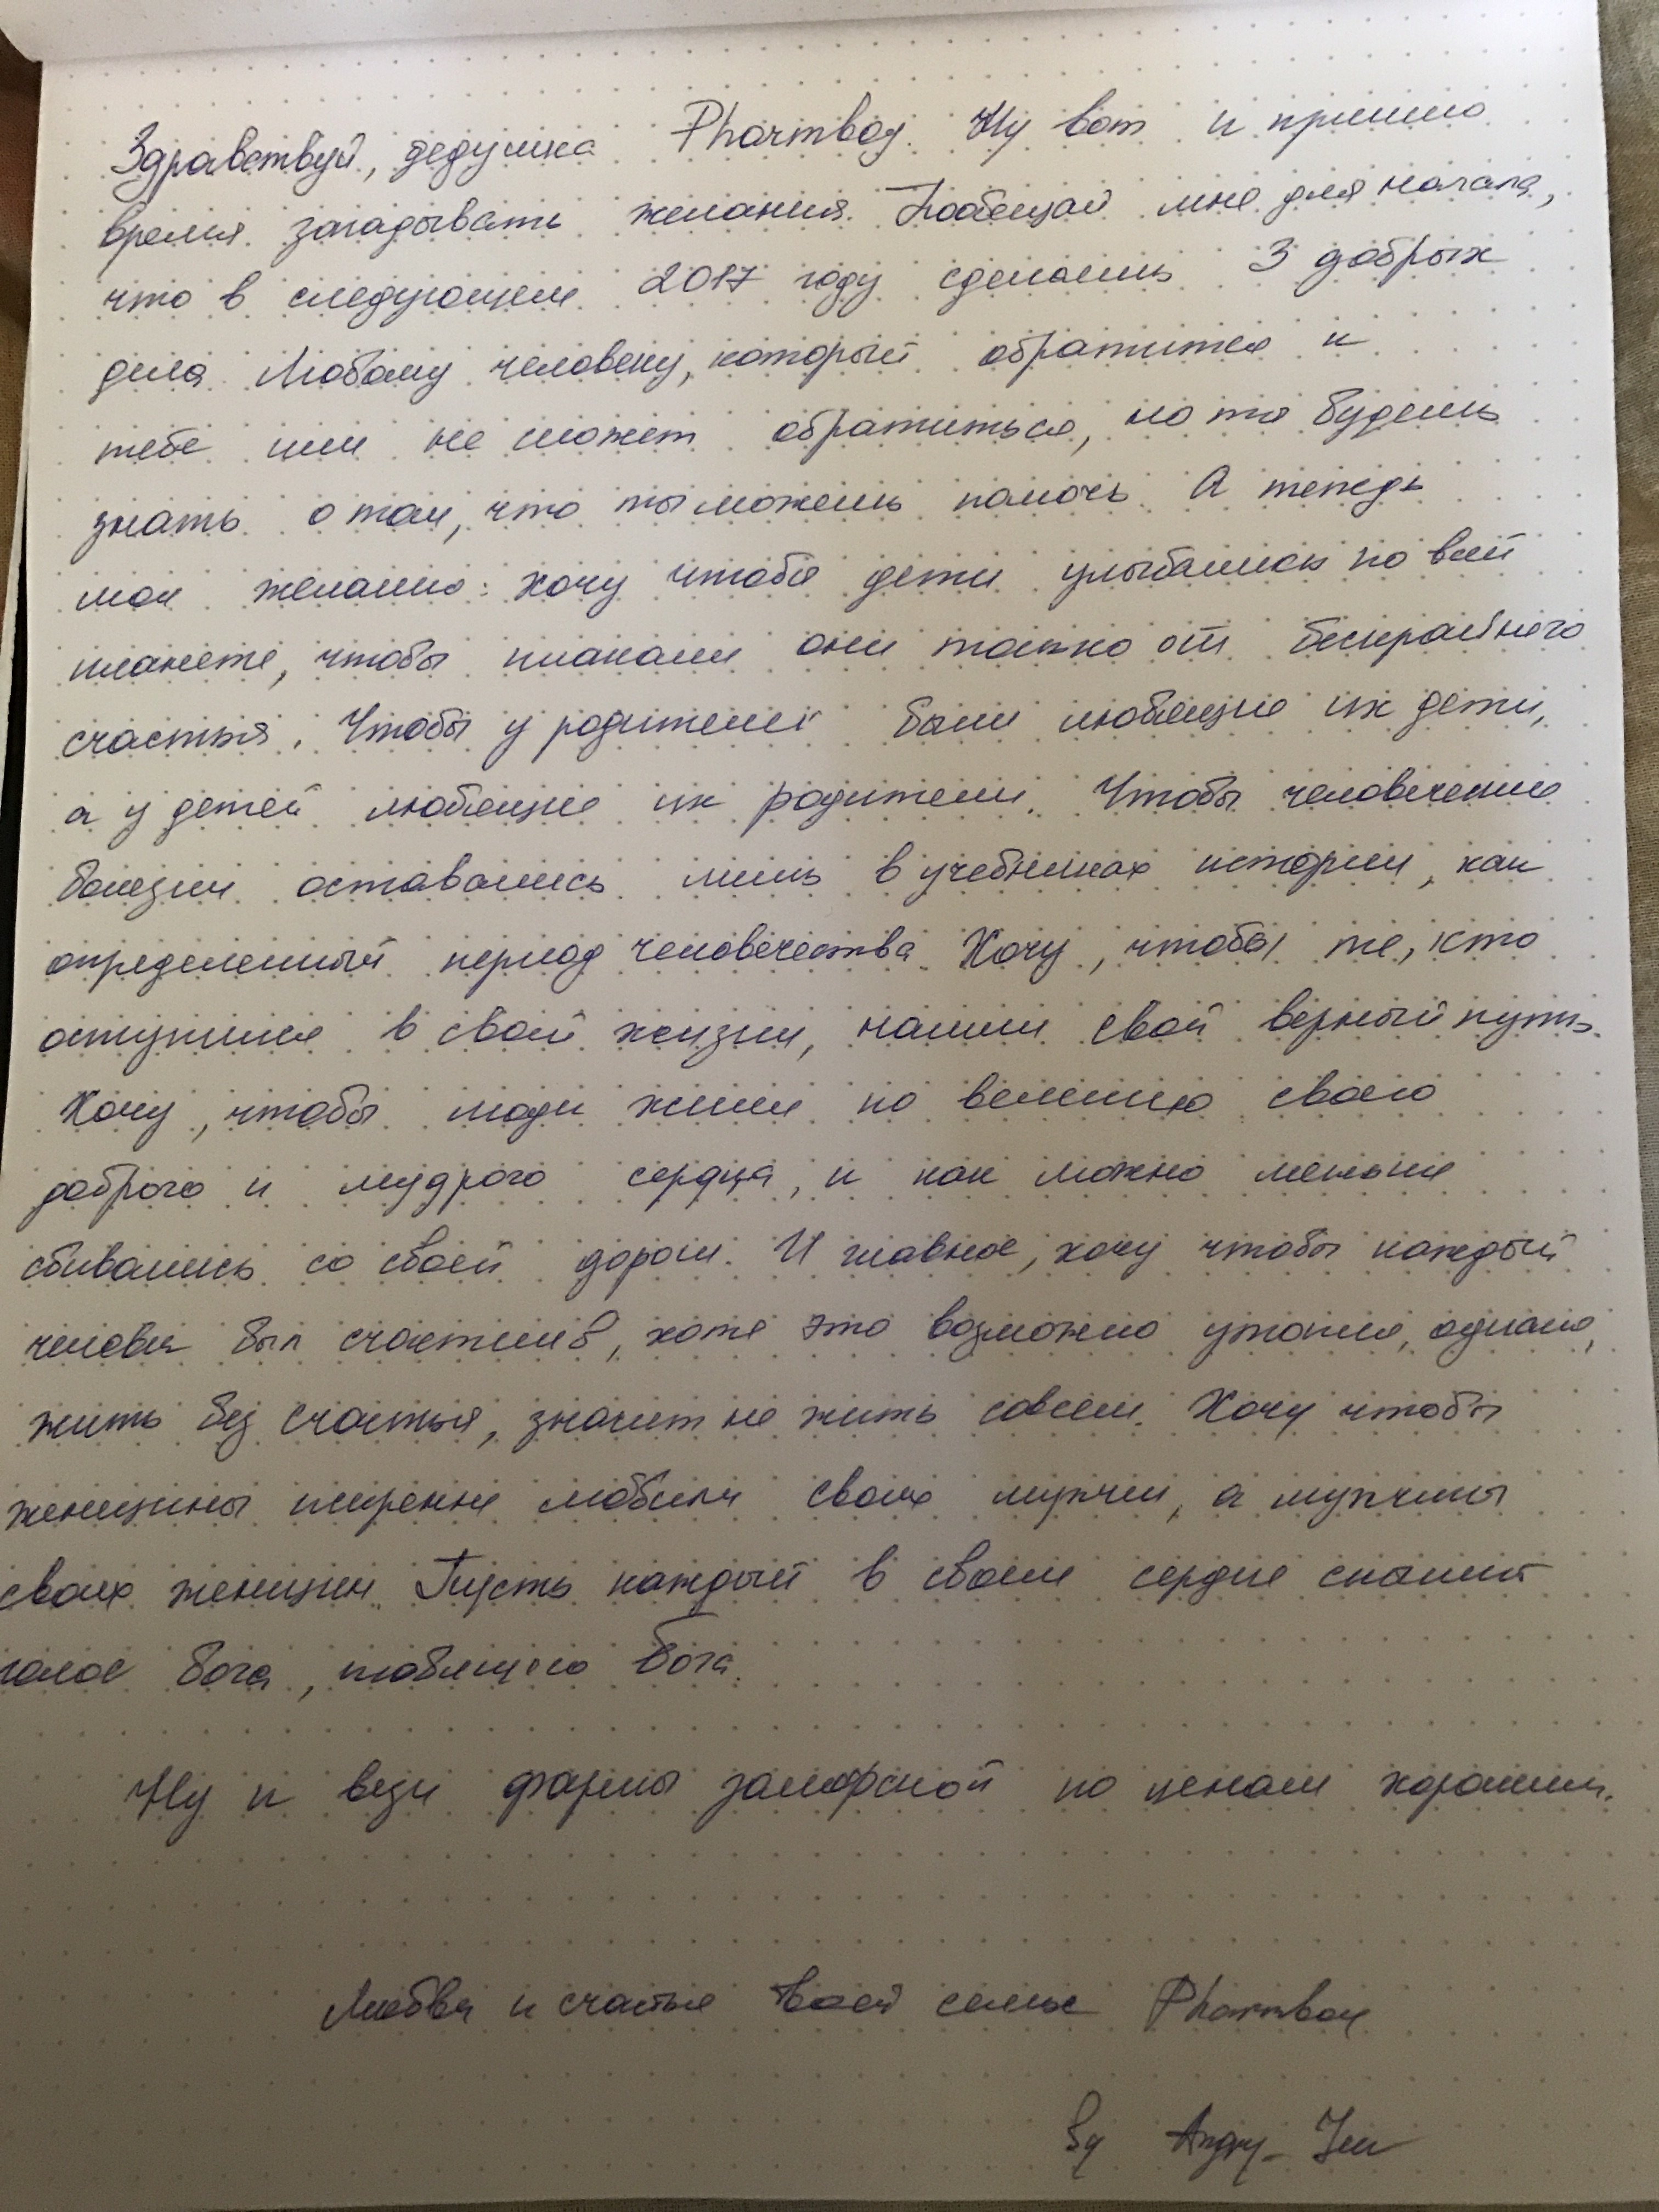 Здравствуй, дедушка Pharmboy. Ну вот и пришло
время загадывать желания. Пообещай мне для начала,
что в следующем 2017 году сделаешь 3 добрых
дела любому человеку, который обратится к
тебе или не сможет обратиться, но ты будешь
знать о том, что ты можешь помочь. А теперь
мои желания: хочу чтобы дети улыбались по всей
планете, чтобы плакали они только от бескрайнего
счастья. Чтобы у родителей были любящие их дети,
а у детей любящие их родители. Чтобы человеческие
болезни оставались лишь в учебниках истории, как
определенный период человечества. Хочу, чтобы те, кто
оступился в своей жизни, нашли свой верный путь.
Хочу, чтобы люди жили по велению своего
доброго и мудрого сердца, и как можно меньше
сбивались со своей дороги. И главное, хочу чтобы каждый
человек был счастлив, хотя это возможно утопия, однако,
жить без счастья, значит не жить совсем. Хочу чтобы
женщины искренне любили своих мужчин, а мужчины
своих женщин. Пусть каждый в своем сердце слышит
голос Бога, любящего Бога.
Ну и вези фармы заморской по ценам хорошим.
Любви и счастья твоей семье Pharmboy
by Angry_Jen